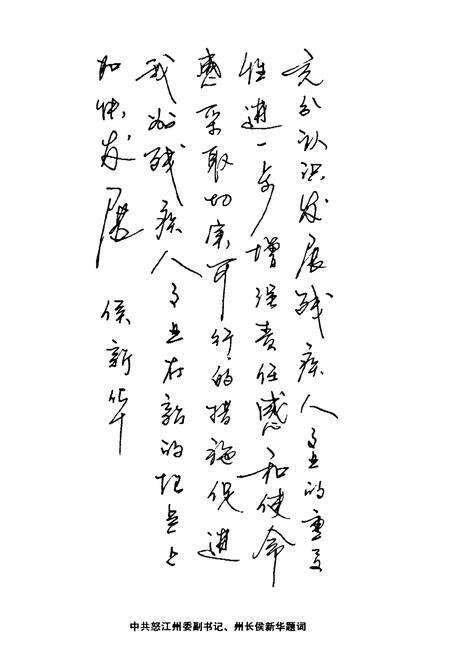 充分认识发展残疾人事业的重要
性进一步增强责任感和使命
感采取切实可行的措施促进
我州残疾人事业在新的起点上
加快发展
侯新华
中共怒江州委副书记、州长侯新华题词